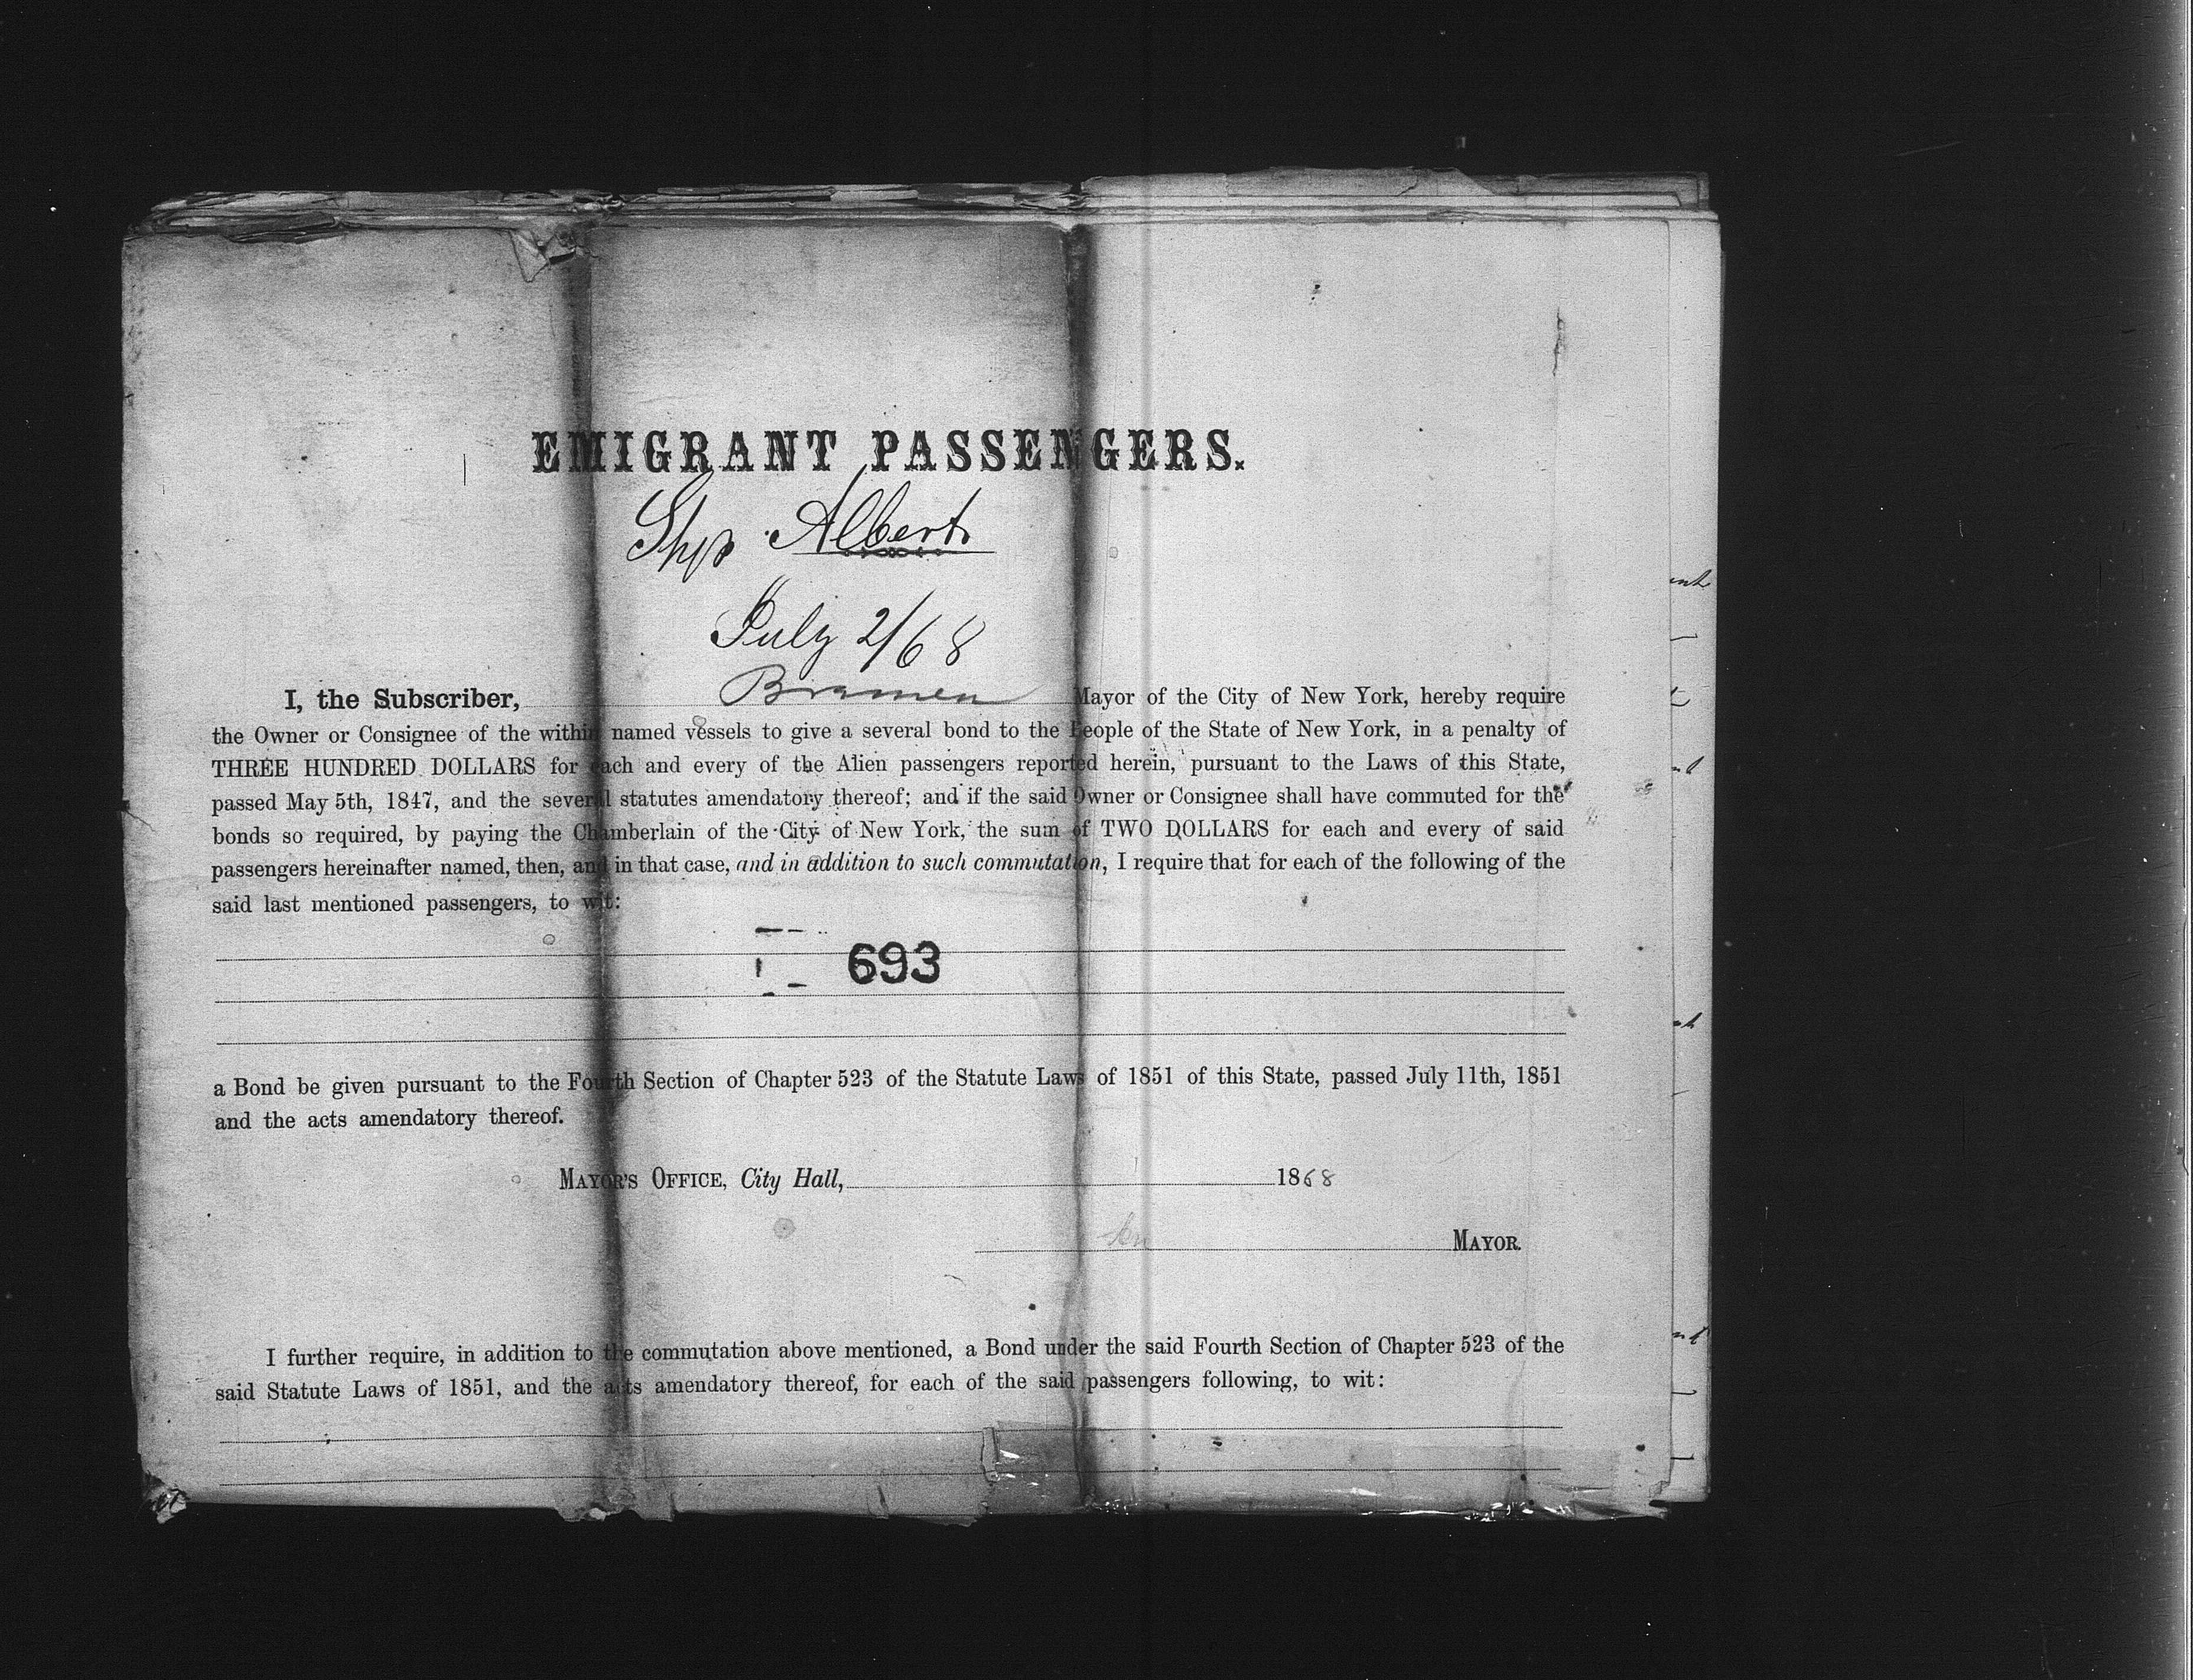 EMIGRANT PASSENGERS.
Ship Albert
July 2/68
Bremen
I, the Subscriber, Mayor of the City of New York, hereby require
the Owner or Consignee of the within named vessels to give a several bond to the People of the State of New York, in a penalty of
THREE HUNDRED DOLLARS for each and every of the Alien passengers reported herein, pursuant to the Laws of this State,
passed May 5th, 1847, and the several statutes amendatory thereof; and if the said Owner or Consignee shall have commuted for the
bonds so required, by paying the Chamberlain of the City of New York, the sum of TWO DOLLARS for each and every of said
passengers hereinafter named, then, and in that case, and in addition to such commutation, I require that for each of the following of the
said last mentioned passengers, to wit:
693
a Bond be given pursuant to the Fourth Section of Chapter 523 of the Statute Laws of 1851 of this State, passed July 11th, 1851
and the acts amendatory thereof.
MAYOR'S OFFICE, City Hall, 1868
MAYOR.
I further require, in addition to the commutation above mentioned, a Bond under the said Fourth Section of Chapter 523 of the
said Statute Laws of 1851, and the acts amendatory thereof, for each of the said passengers following, to wit: